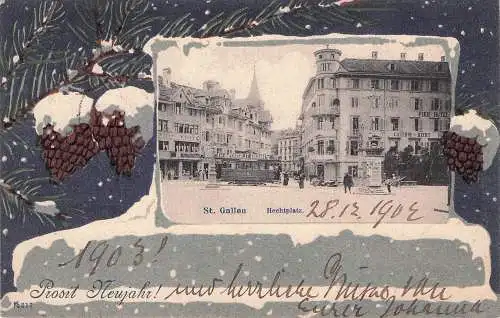 St. Gallen Hechtplatz. 28.12.1902
1903!
Prosit Neujahr! und herzliche Grüsse von
Eurer Johanna